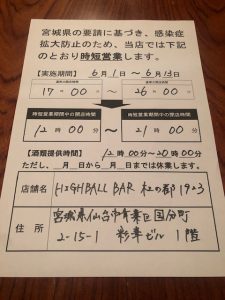 宮城県の要請に基づき、感染症
拡大防止のため、当店では下記
のとおり時短営業します。
【実施期間】 6月1日 〜 6月13日
通常の開店時間 通常の閉店時間
17時00分 〜 26時00分
時短営業期間中の開店時間 時短営業期間中の閉店時間
12時00分 〜 21時00分
【酒類提供時間】 12時00分〜20時00分
ただし、 月 日から 月 日までは休業します。
店舗名 HIGHBALL BAR 杜の都 1923
住所 宮城県仙台市青葉区国分町
2-15-1 彩華ビル 1階